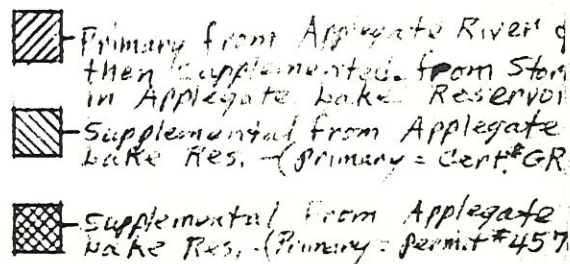 Primary from Applegate River &
then Supplemented from Stor
in Applegate Lake Reservoi
Supplemental from Applegate
Lake Res. - (Primary = Cert.# GR
Supplemental From Applegate
Lake Res. - (Primary = permit #457